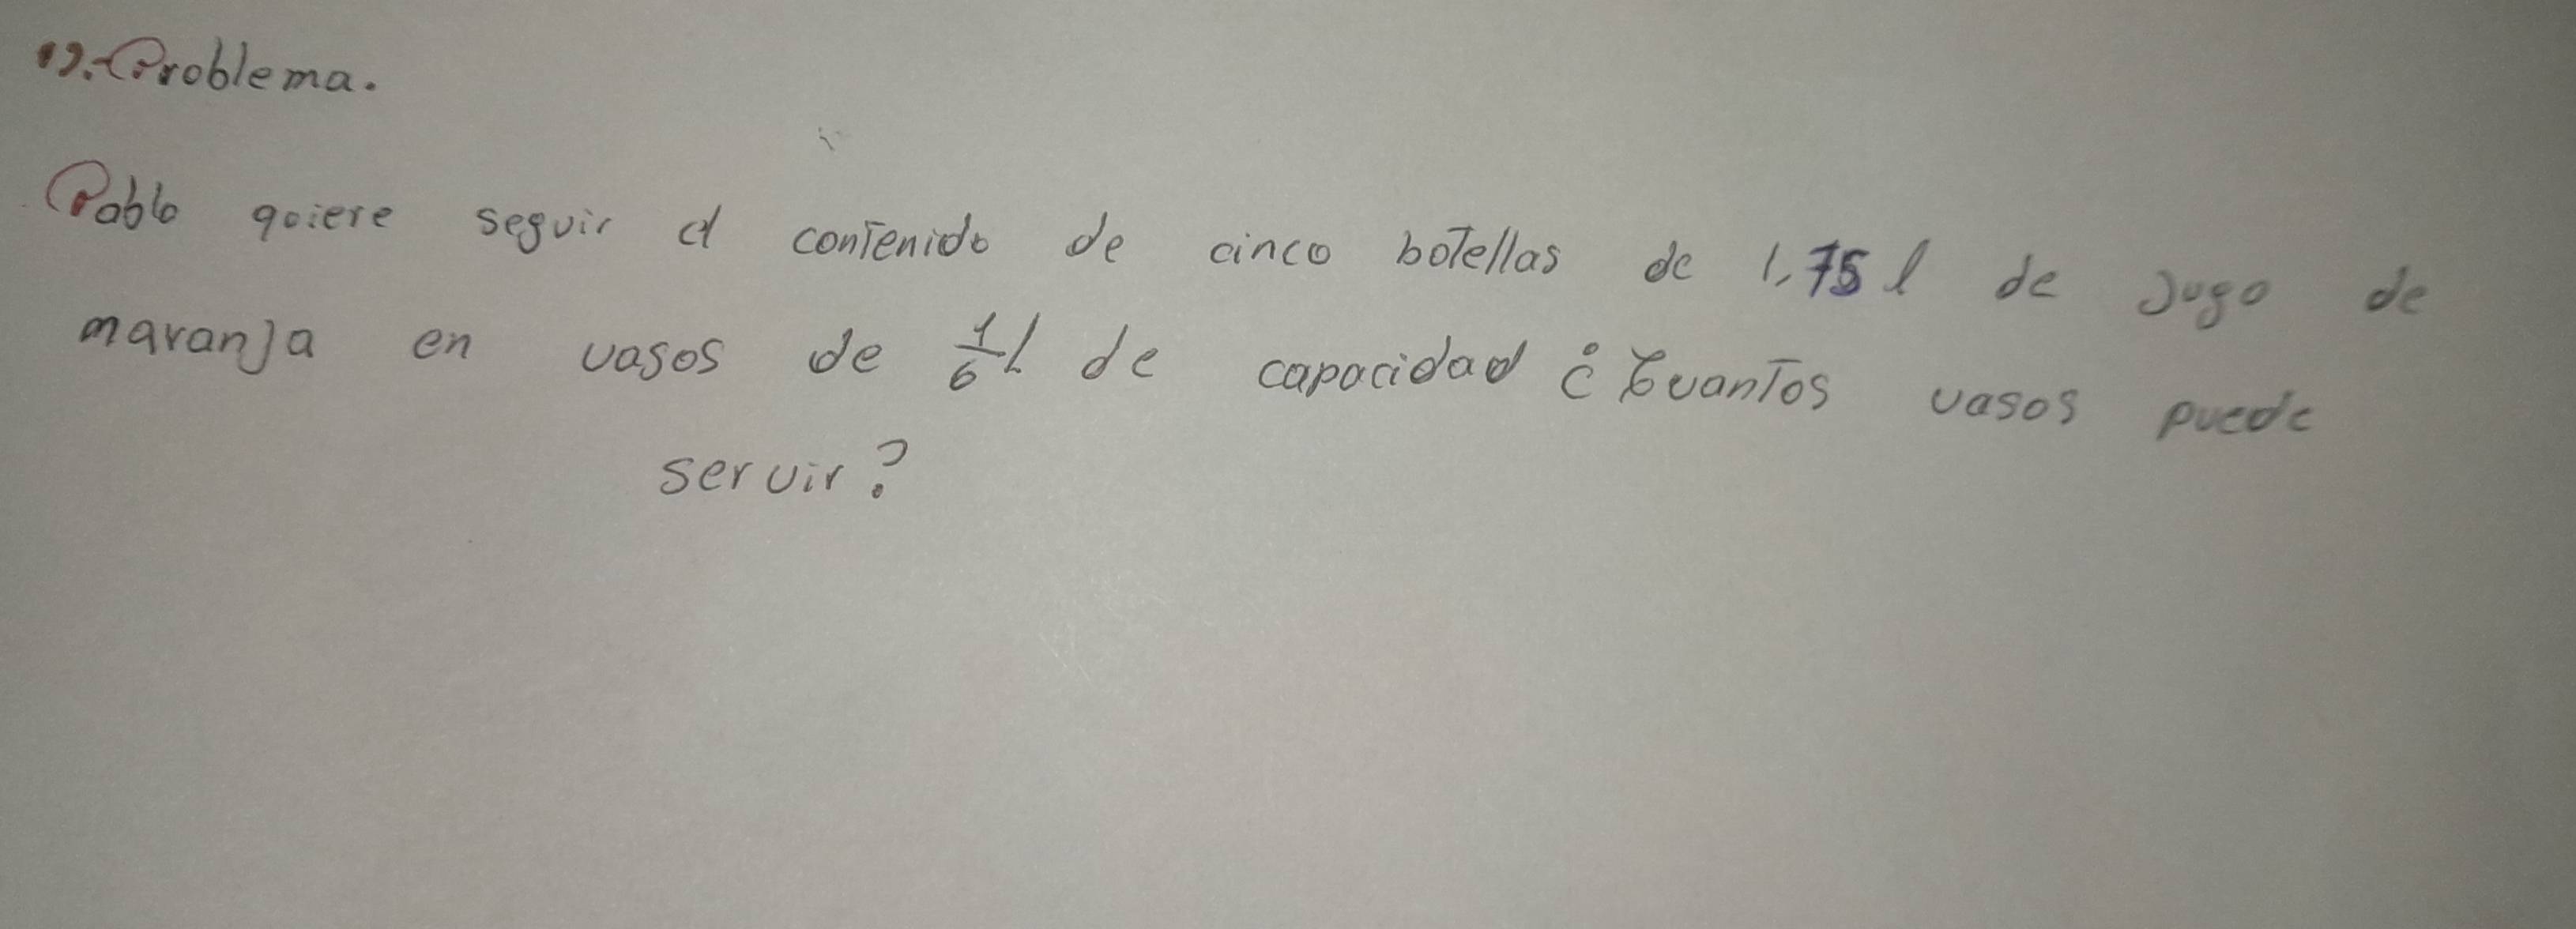 12.-Problema.
Pablo quiere seguir el contenido de cinco botellas de 1,75 l de Jugo de
naranja en vasos de 1/6 L de capacidad ¿Cuantos vasos puede
servir?